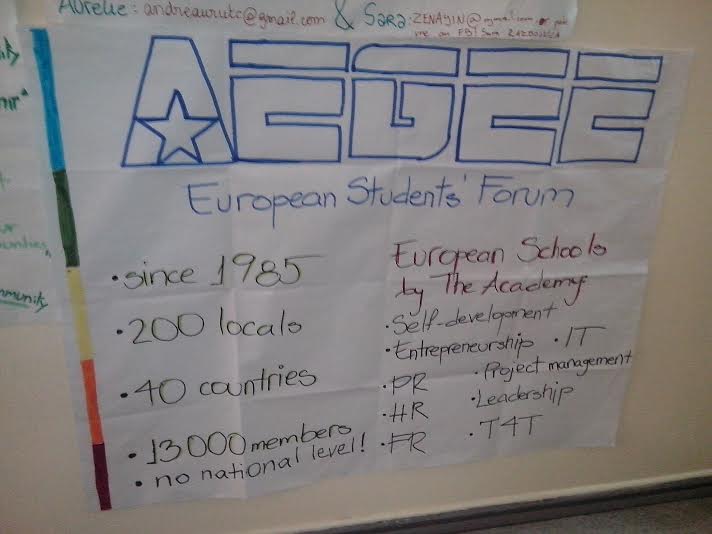 Aurelie: andreaurutc@gmail.com & Sara: ZENAYIN@
me on FB! Sara
AEGEE
European Students' Forum
• since 1985
• 200 locals
• 40 countries
• 13000 members
• no national level!
European Schools
by The Academy
• Self-development
• Entrepreneurship • IT
• PR • Project management
• HR • Leadership
• FR • T4T